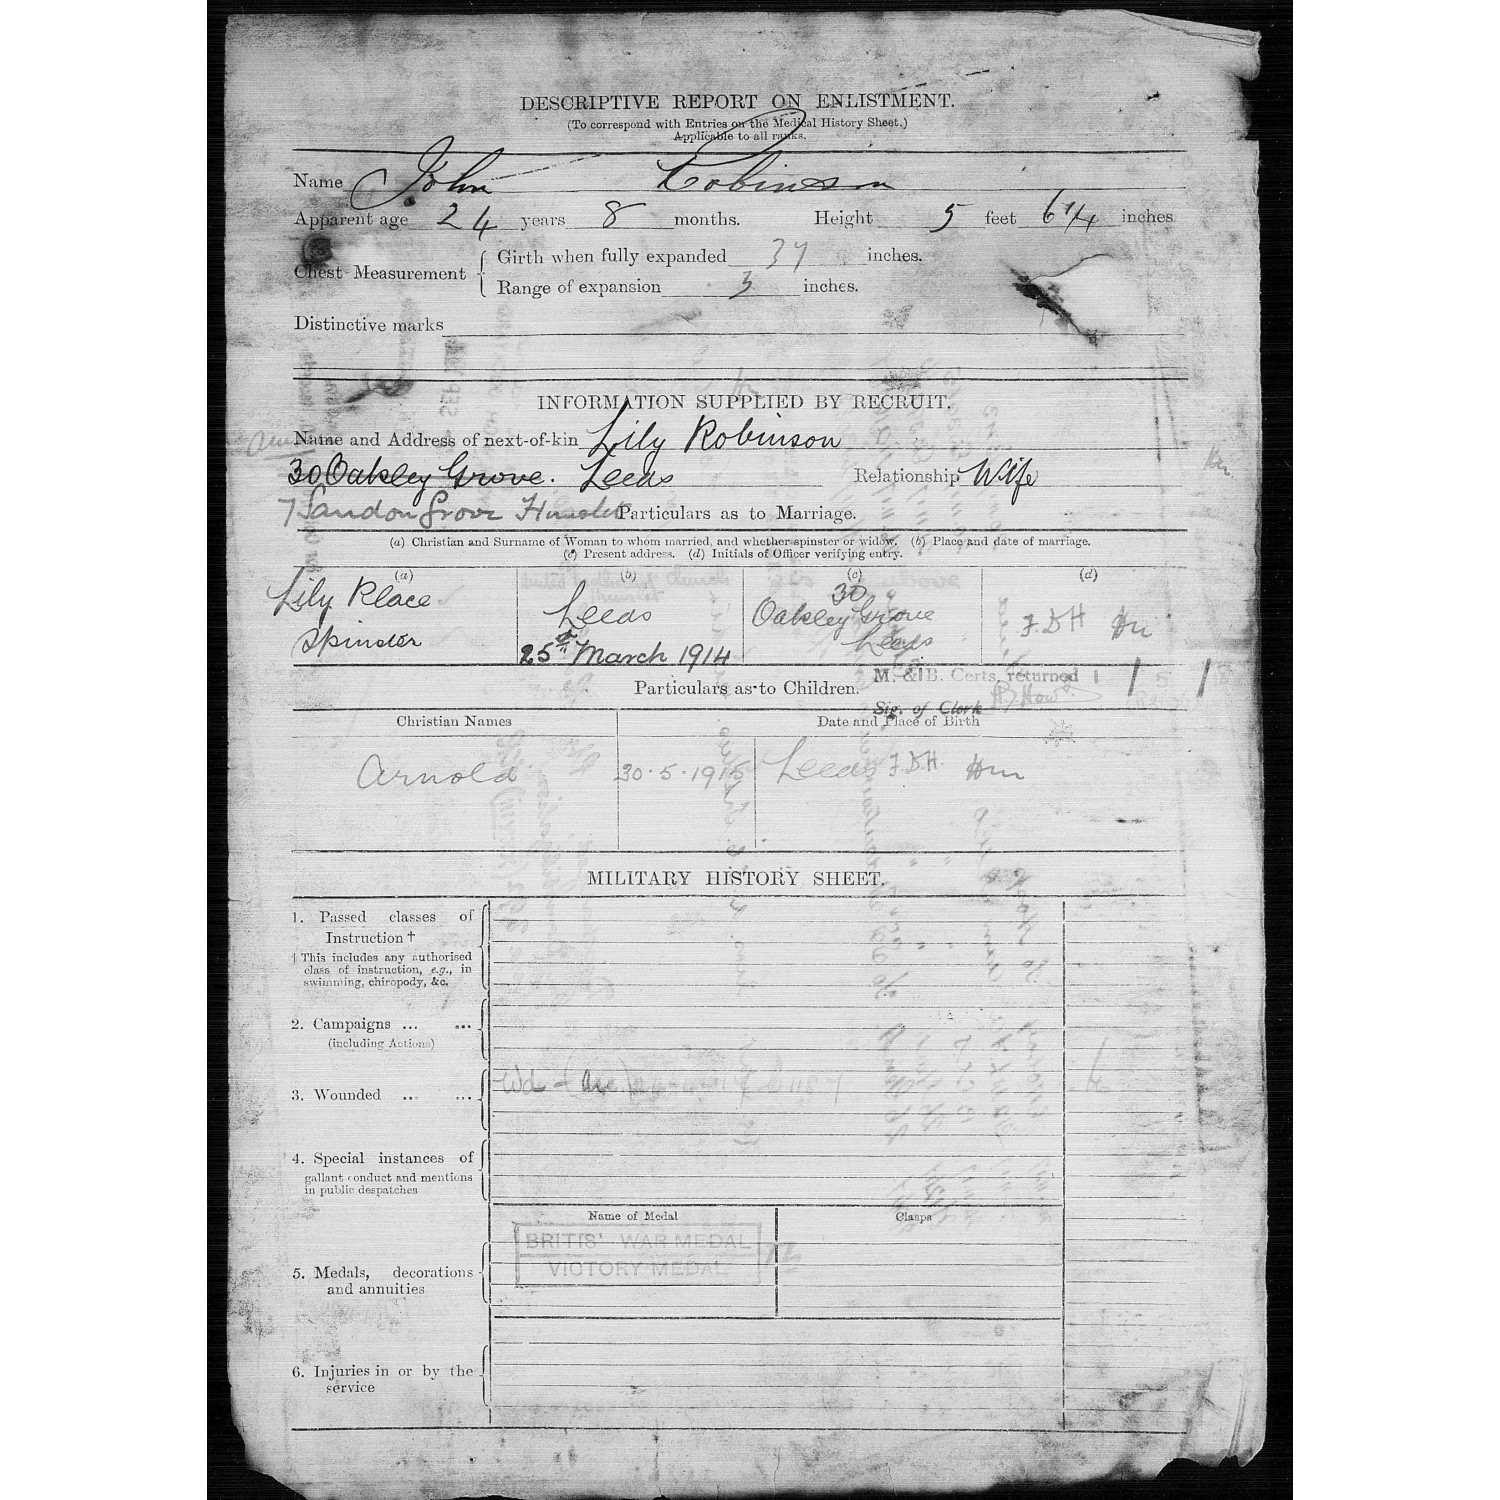 DESCRIPTIVE REPORT ON ENLISTMENT.
(To correspond with Entries on the Medical History Sheet.)
Applicable to all ranks.
Name John Robinson
Apparent age 24 years 8 months. Height 5 feet 6 1/4 inches
Chest Measurement { Girth when fully expanded 37 inches.
Range of expansion 3 inches.
Distinctive marks
INFORMATION SUPPLIED BY RECRUIT.
Name and Address of next-of-kin Lily Robinson
30 Oakley Grove. Leeds Relationship Wife
7 Sandon Grove Hunslet Particulars as to Marriage.
(a) Christian and Surname of Woman to whom married, and whether spinster or widow. (b) Place and date of marriage.
(c) Present address. (d) Initials of Officer verifying entry.
(a) (b) (c) (d)
Lily Place Leeds 30
Spinster 25th March 1914 Oakley Grove F.D.H Hm
Leeds
M. & B. Certs. returned
Particulars as to Children.
Sig. of Clerk
Christian Names Date and Place of Birth
Arnold 30.5.1915 Leeds F.D.H. Hm
MILITARY HISTORY SHEET.
1. Passed classes of
Instruction †
† This includes any authorised
class of instruction, e.g., in
swimming, chiropody, &c.
2. Campaigns ... ...
(including Actions)
3. Wounded ... ... Wd
4. Special instances of
gallant conduct and mentions
in public despatches
Name of Medal Clasps
BRITIS' WAR MEDAL
VICTORY MEDAL
5. Medals, decorations
and annuities
6. Injuries in or by the
service